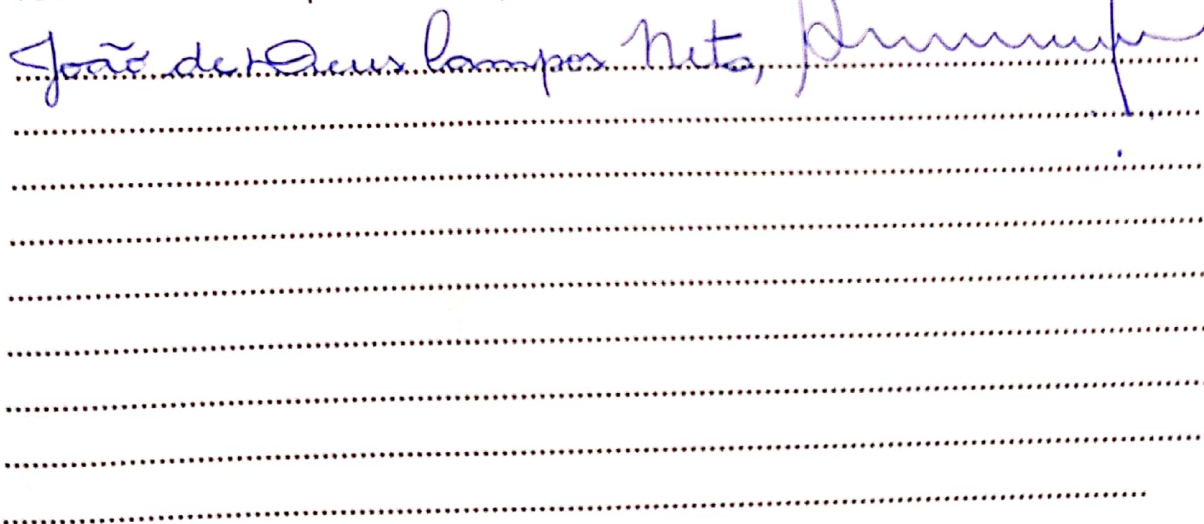 João de Deus Campos Neto,